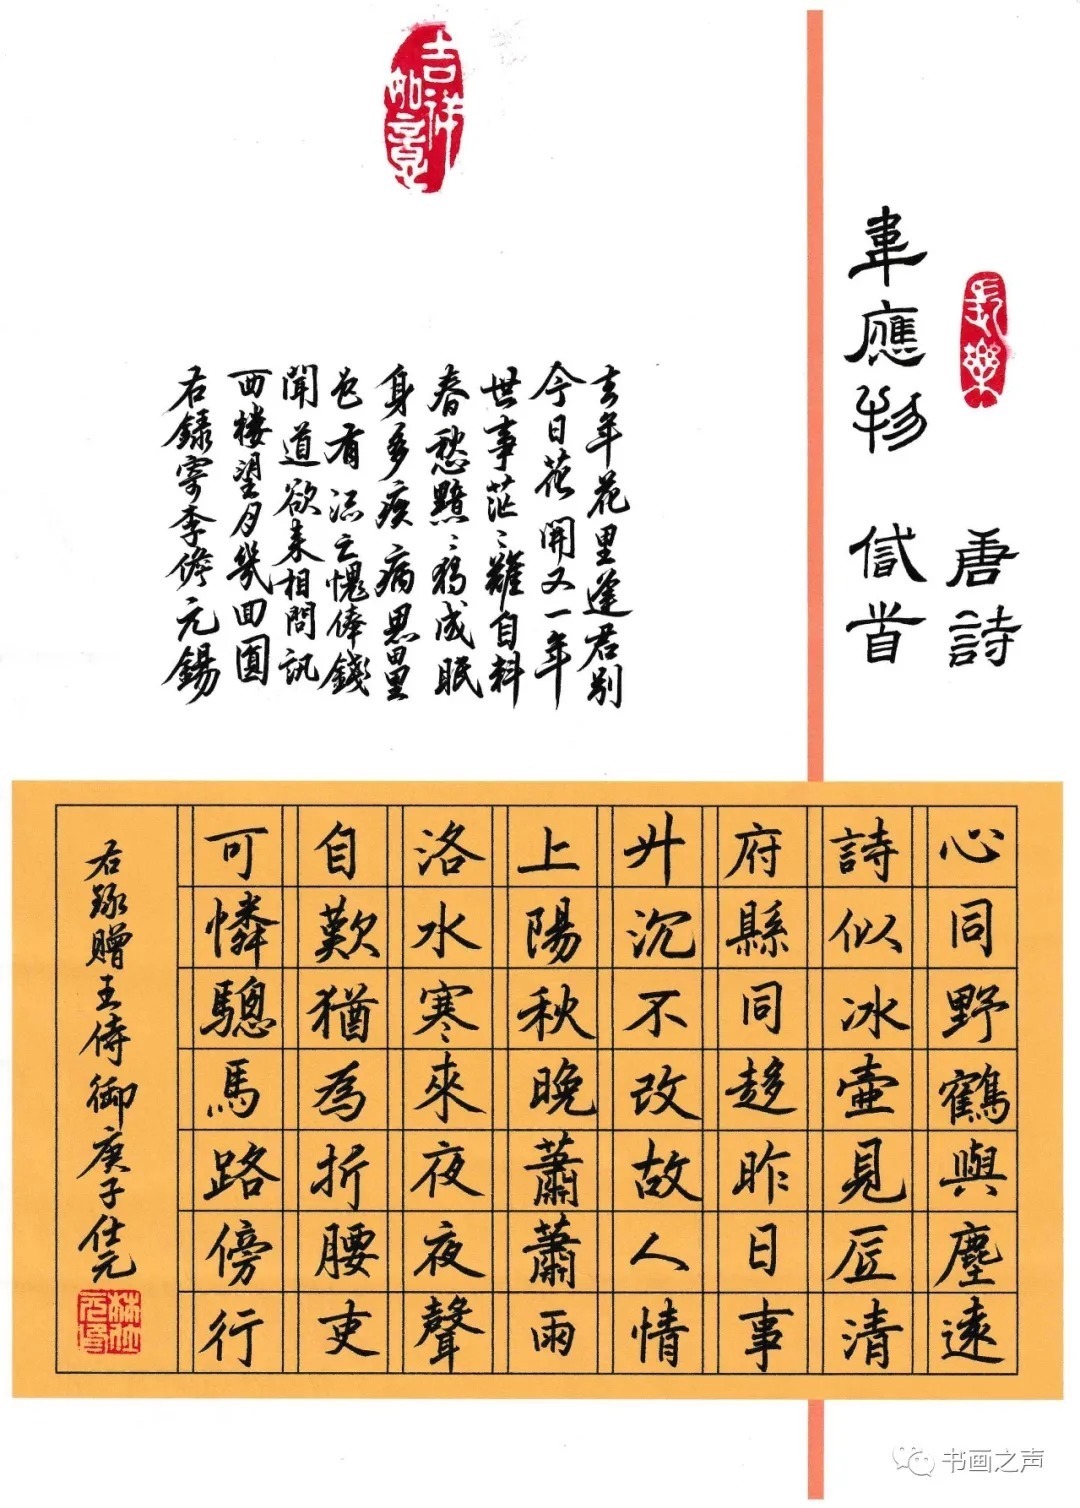 長樂
唐詩
韋應物 貳首
吉祥
如意
去年花里逢君别
今日花開又一年
世事茫〻難自料
春愁黯〻獨成眠
身多疾病思田里
邑有流亡愧俸錢
聞道欲来相問訊
西楼望月幾回圓
右録寄李儋元錫
心同野鶴與塵遠
詩似冰壷見底清
府縣同趍昨日事
升沉不改故人情
上陽秋晚蕭蕭雨
洛水寒來夜夜聲
自歎猶為折腰吏
可憐驄馬路傍行
右録贈王侍御庚子仕元
书画之声